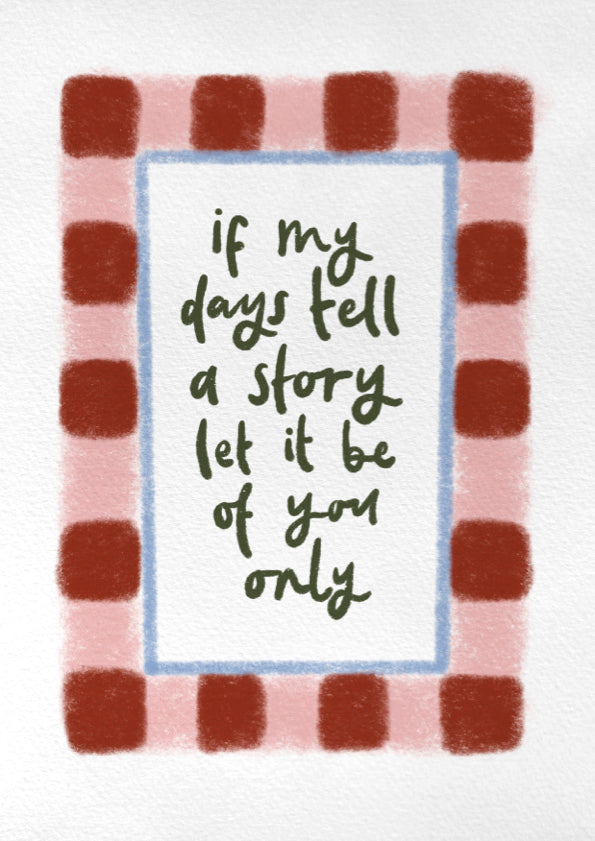 if my
days tell
a story
let it be
of you
only